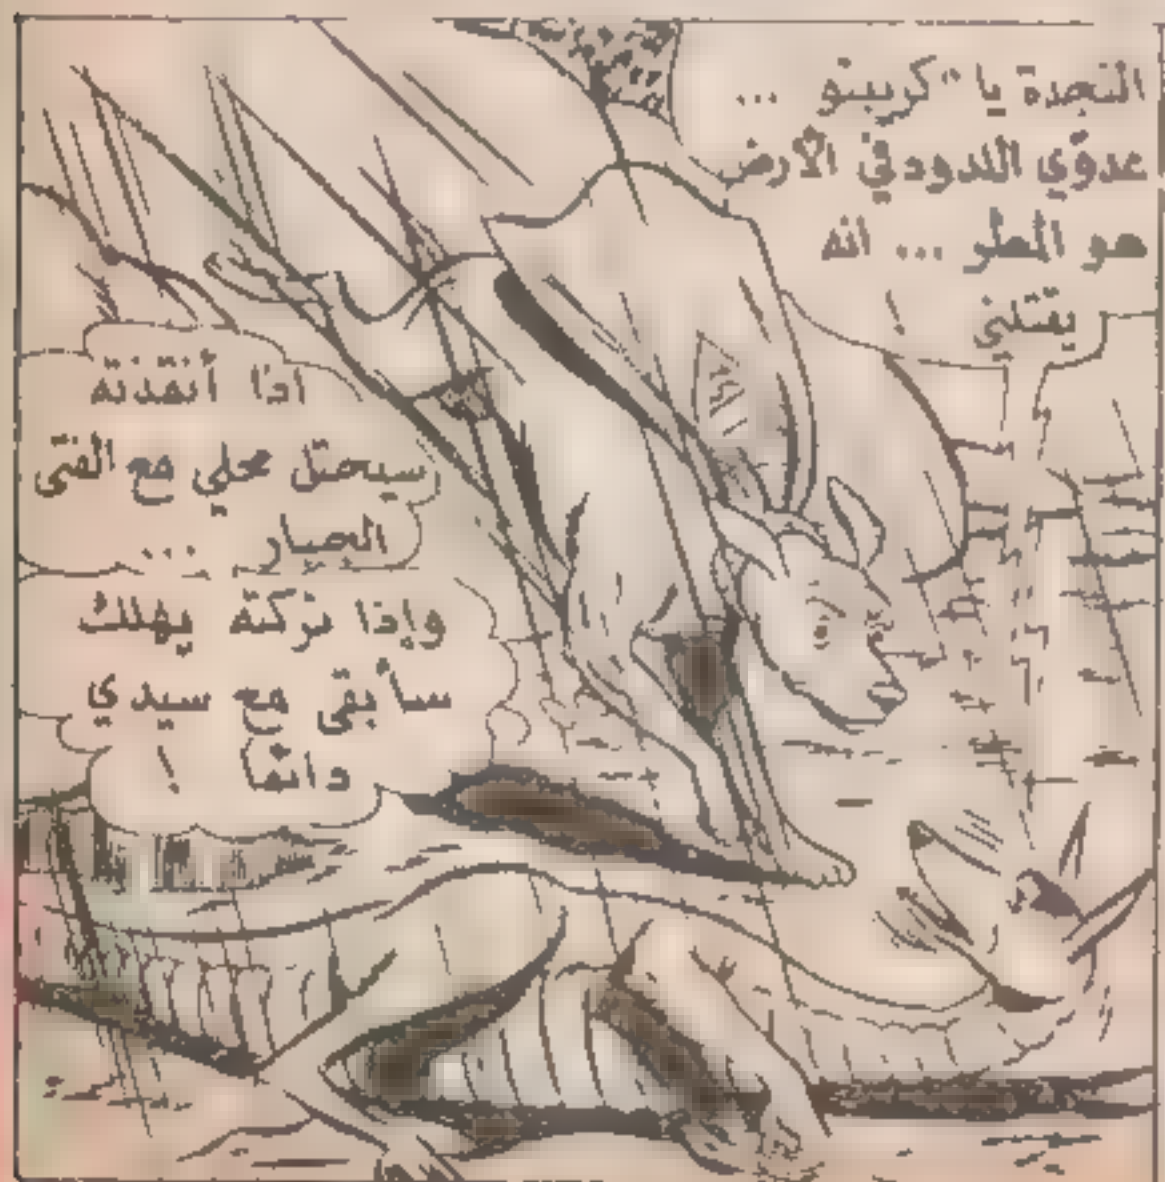 النجدة يا "كريبتو ...
عدوّي اللدود في الأرض
هو المطر ... انه
يقتلني !
اذا أنقذته
سيحتل محلي مع الفتى
الجبار ...
وإذا تركته يهلك
سأبقى مع سيدي
دائما !